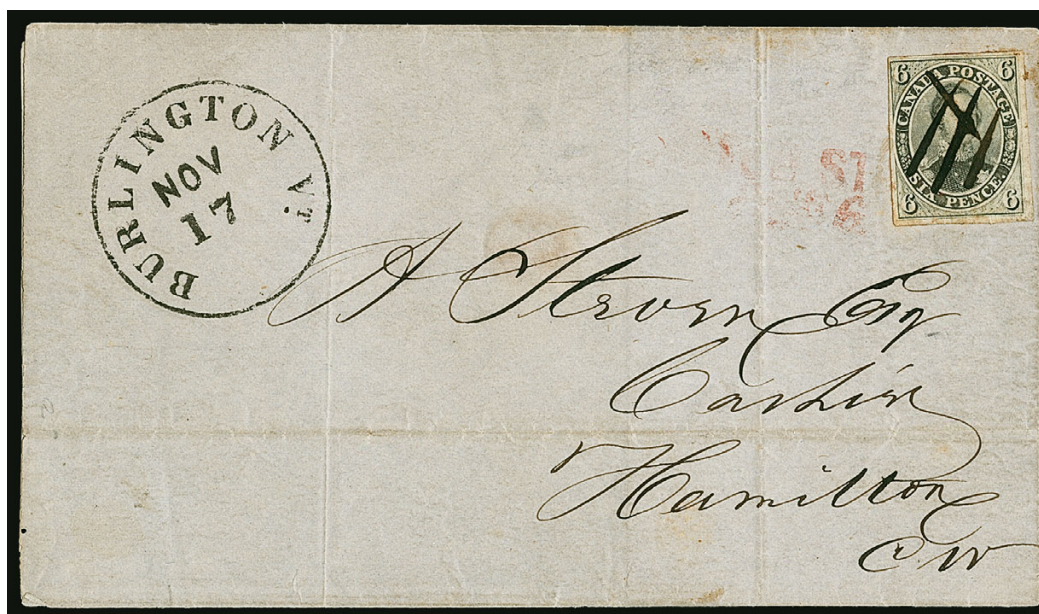 BURLINGTON Vt.
NOV
17
6 CANADA POSTAGE 6
6 SIX PENCE 6
ST
6
A Steven Esq
Cashier
Hamilton
CW